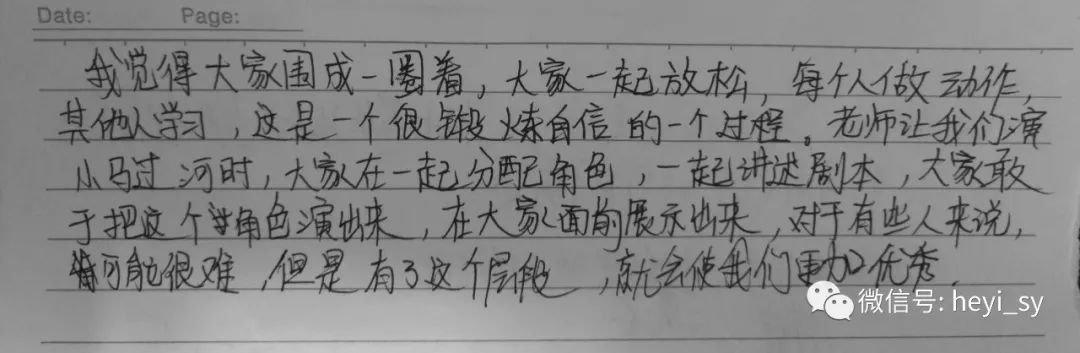 Date: Page:
我觉得大家围成一圈着，大家一起放松，每个人做动作，
其他人学习，这是一个很锻炼自信的一个过程。老师让我们演
小马过河时，大家在一起分配角色，一起讲述剧本，大家敢
于把这个角色演出来，在大家面前展示出来，对于有些人来说，
可能很难，但是有了这个层段，就会使我们更加优秀
微信号: heyi_sy